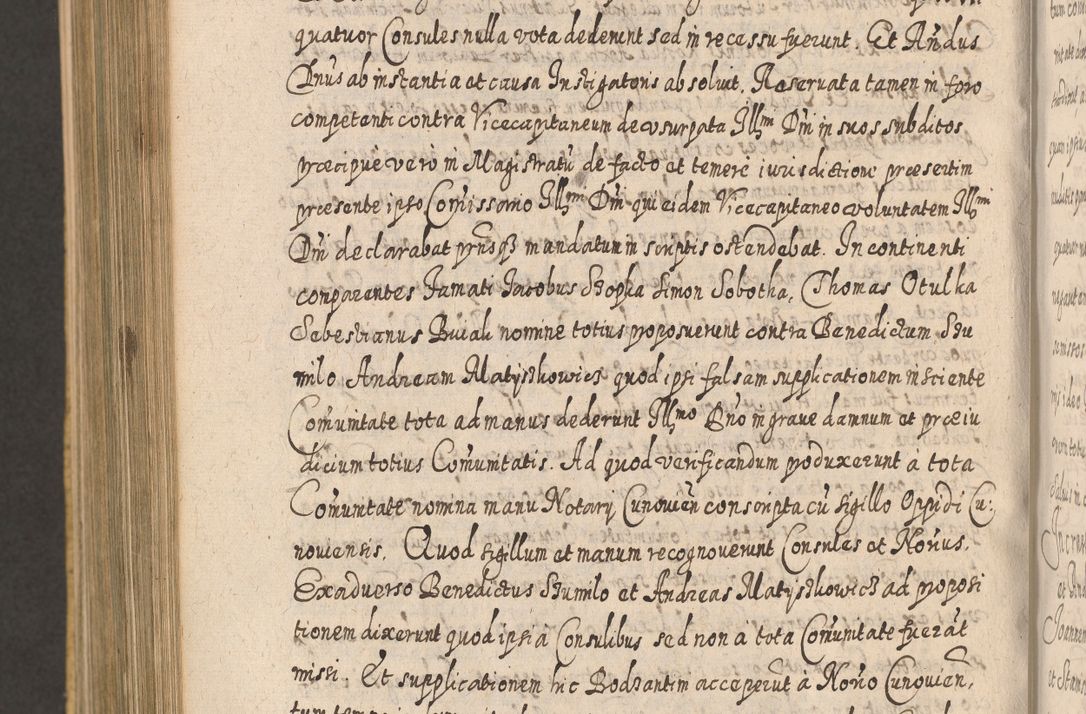 quatuor Consules nulla vota dederunt sed in recessu fuerunt. Et Andus
Dnus ab instantia et causa Instigatoris absoluit. Reseruata tamen in foro
competenti contra Vicecapitaneum de vsurpata Illmi Dni in suos subditos
præcipuè vero in Magistratū de facto et temerè iurisdictione præsertim
præsente ipso Comissario Illmi Dni qui eidem Vicecapitaneo voluntatem Illmi
Dni declarabat pnsq mandatum in scriptis ostendebat. In continenti
comparentes Famati Jacobus Szopka Simon Sobotha, Thomas Otulka
Sebestianus Buiak nomine totius proposuerunt contra Benedictum Szu
milo Andream Matyszkowicz quod ipsi falsam supplicationem insciente
Comunitate tota ad manus dederunt Illmo Dno in graue damnum et præiu
dicium totius Comunitatis. Ad quod verificandum produxerunt à tota
Comunitate nomina manu Notarij Cunouien conscripta cū sigillo Oppidi Cu:
nouiensis. Quod sigillum et manum recognouerunt Consules et Norius.
Exaduerso Benedictus Szumilo et Andreas Matyszkowicz ad proposi
tionem dixerunt quod ipsi à Consulibus sed non à tota Comunitate fuerāt
missi. Et supplicationem hic Bodzantim acceperūt à Norio Cunouien,